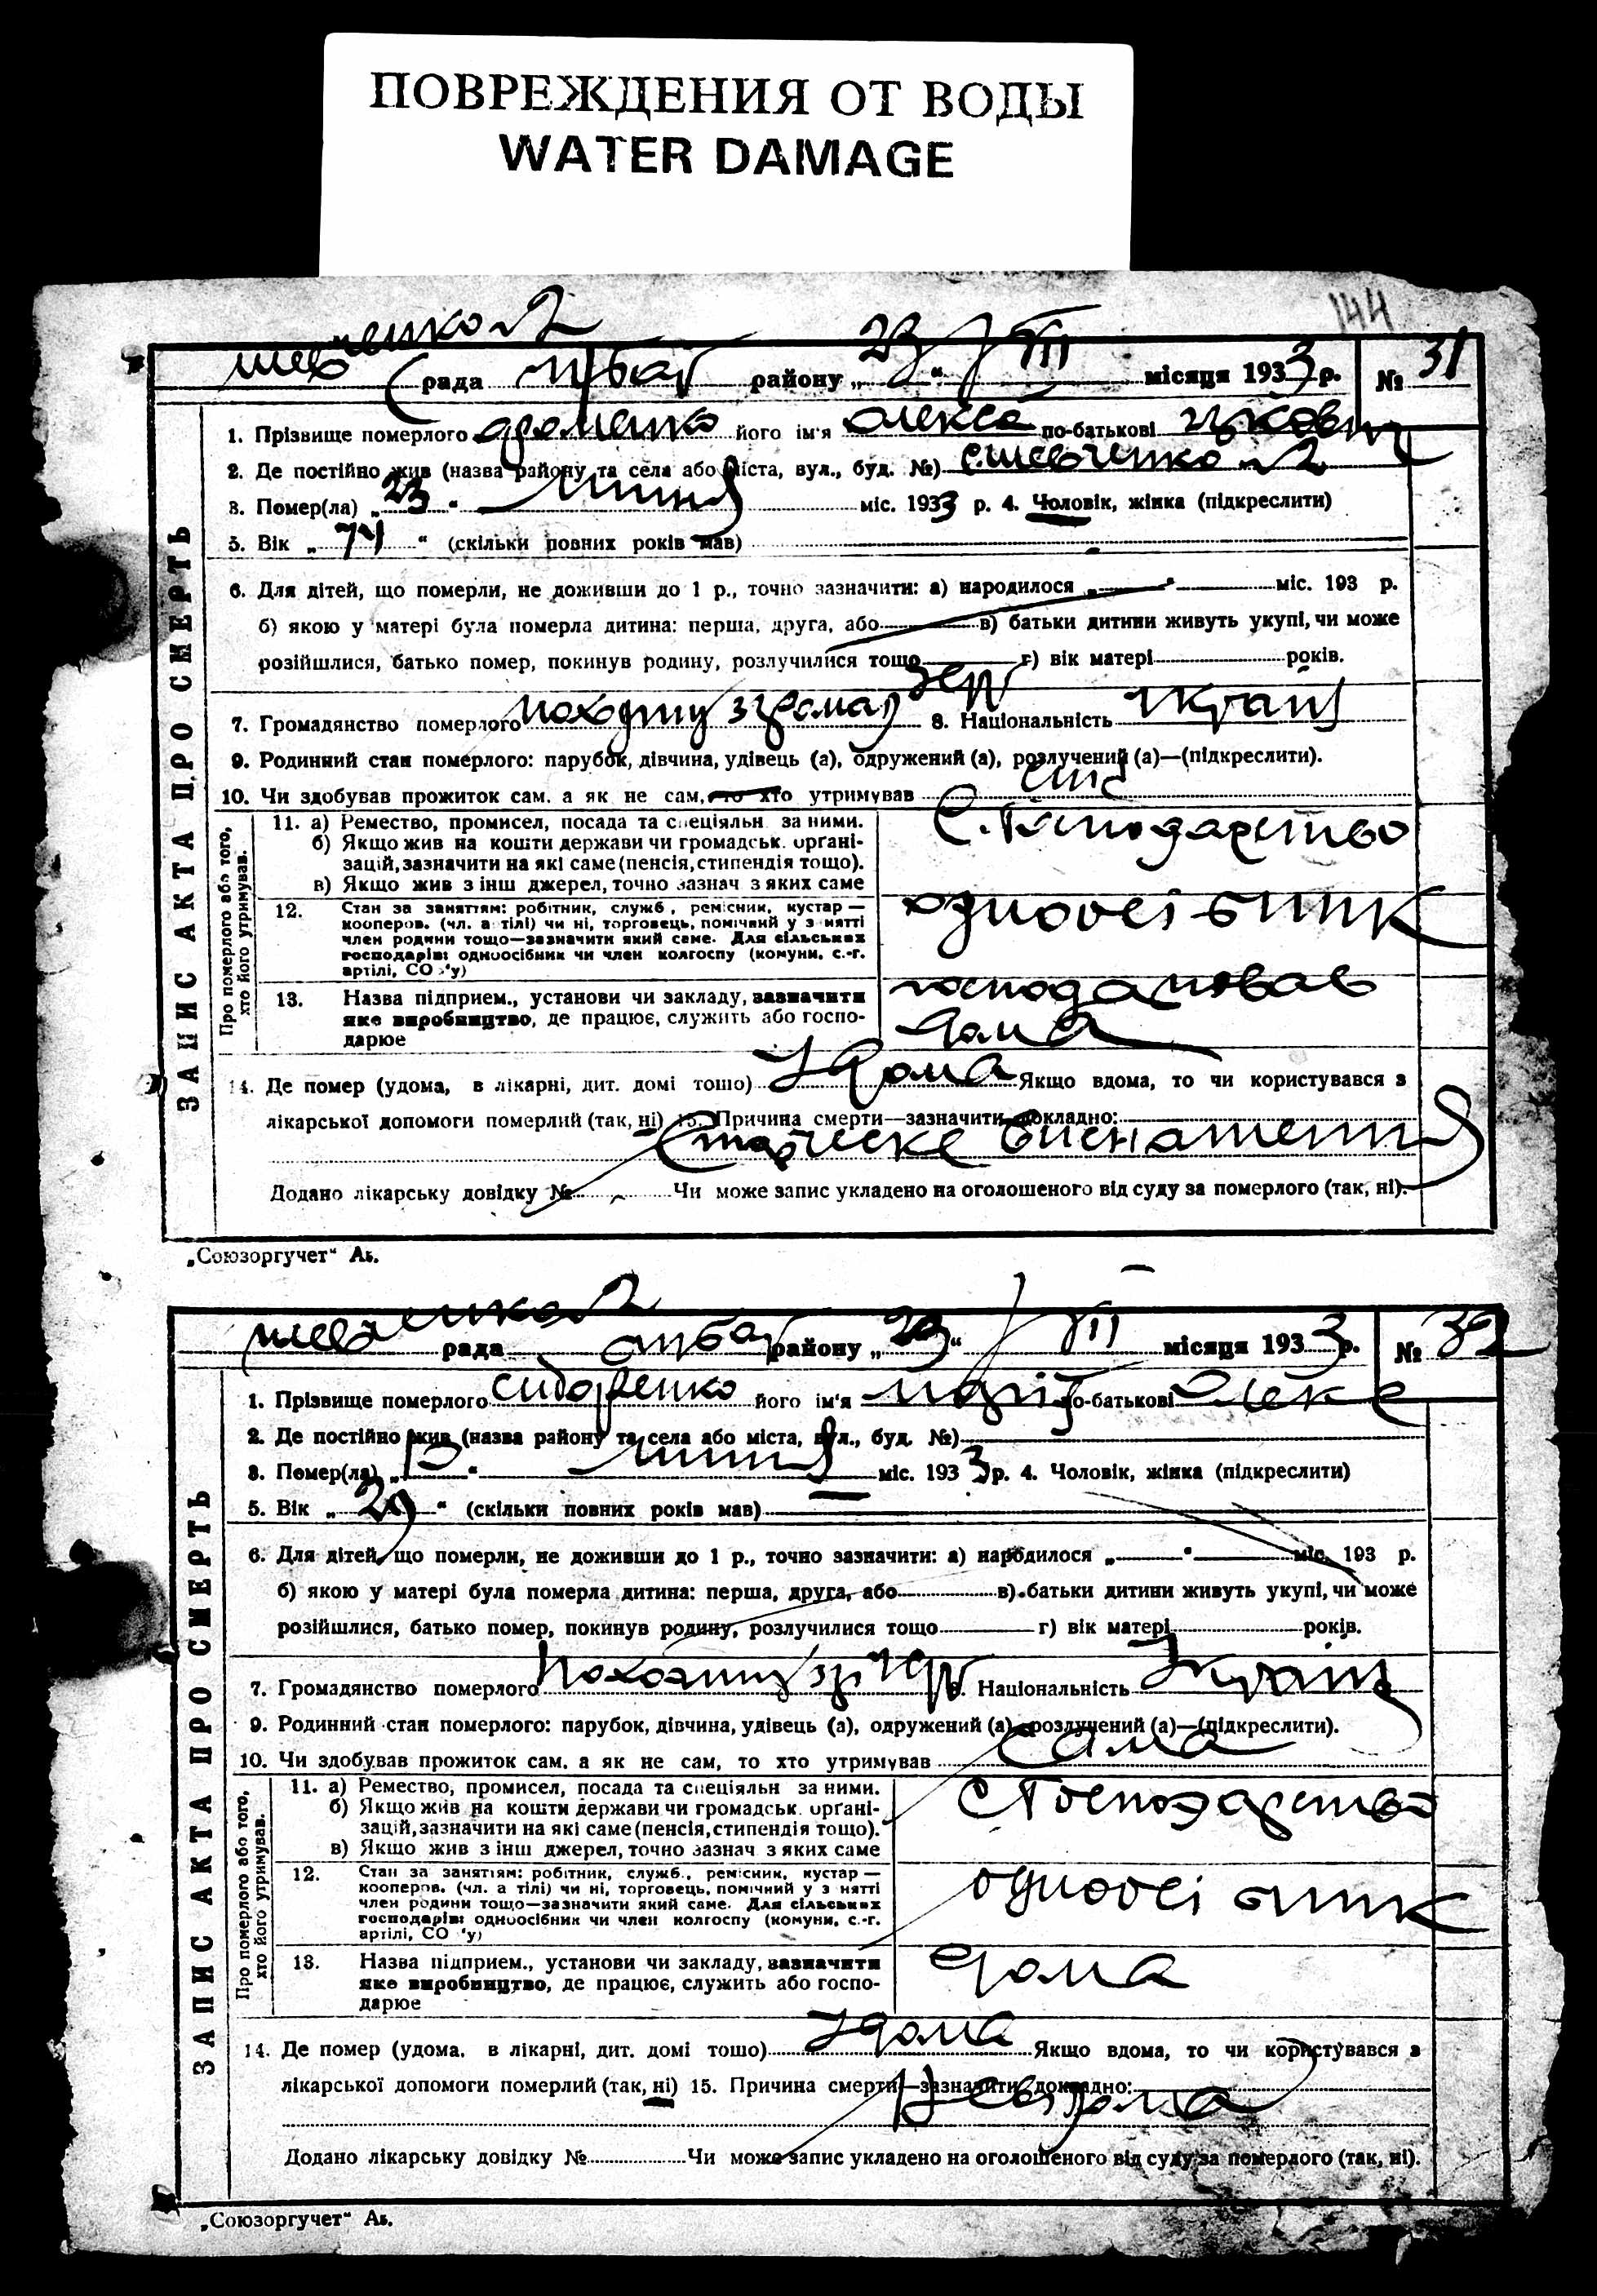 ПОВРЕЖДЕНИЯ ОТ ВОДЫ
WATER DAMAGE
144
шевченко 2
рада району „23“ / VII місяця 1933 р. № 31
ЗАПИС АКТА ПРО СМЕРТЬ
1. Прізвище померлого його ім'я Олекса по-батькові
2. Де постійно жив (назва району та села або міста, вул., буд. №) с. Шевченко 2
3. Помер(ла) „23“ липня міс. 1933 р. 4. Чоловік, жінка (підкреслити)
5. Вік „74“ (скільки повних років мав)
6. Для дітей, що померли, не доживши до 1 р., точно зазначити: а) народилося „ “ міс. 193 р.
б) якою у матері була померла дитина: перша, друга, або в) батьки дитини живуть укупі, чи може
розійшлися, батько помер, покинув родину, розлучилися тощо г) вік матері років.
7. Громадянство померлого походить з громад 8. Національність Україн
9. Родинний стан померлого: парубок, дівчина, удівець (а), одружений (а), розлучений (а)—(підкреслити).
10. Чи здобував прожиток сам, а як не сам, то хто утримував сам
Про померлого або того, хто його утримував.
11. а) Ремество, промисел, посада та спеціяльн за ними.
б) Якщо жив на кошти держави чи громадськ. органі-
зацій, зазначити на які саме (пенсія, стипендія тощо).
в) Якщо жив з інш джерел, точно зазнач з яких саме
С. Господарство
12. Стан за заняттям: робітник, служб., ремісник, кустар—
кооперов. (чл. а тілі) чи ні, торговець, помічний у з нятті
член родини тощо—зазначити який саме. Для сільських
господарів: одноосібник чи член колгоспу (комуни, с.-г.
артілі, СО 'у)
одноосібник
13. Назва підприєм., установи чи закладу, зазначити
яке виробництво, де працює, служить або госпо-
дарює
господарював
дома
14. Де помер (удома, в лікарні, дит. домі тощо) удома Якщо вдома, то чи користувався з
лікарської допомоги померлий (так, ні) 15. Причина смерти—зазначити докладно:
Старческе
Додано лікарську довідку № Чи може запис укладено на оголошеного від суду за померлого (так, ні).
„Союзоргучет“ Аь.
шевченко 2
рада району „23“ / VII місяця 1933 р. № 32
ЗАПИС АКТА ПРО СМЕРТЬ
1. Прізвище померлого Сидоренко його ім'я Марія по-батькові Олекс
2. Де постійно жив (назва району та села або міста, вул., буд. №)
3. Помер(ла) „ “ липня міс. 1933 р. 4. Чоловік, жінка (підкреслити)
5. Вік „29“ (скільки повних років мав)
6. Для дітей, що померли, не доживши до 1 р., точно зазначити: а) народилося „ “ міс. 193 р.
б) якою у матері була померла дитина: перша, друга, або в) батьки дитини живуть укупі, чи може
розійшлися, батько помер, покинув родину, розлучилися тощо г) вік матері років.
7. Громадянство померлого походить 8. Національність Україн
9. Родинний стан померлого: парубок, дівчина, удівець (а), одружений (а), розлучений (а)—(підкреслити).
10. Чи здобував прожиток сам, а як не сам, то хто утримував сама
Про померлого або того, хто його утримував.
11. а) Ремество, промисел, посада та спеціяльн за ними.
б) Якщо жив на кошти держави чи громадськ. органі-
зацій, зазначити на які саме (пенсія, стипендія тощо).
в) Якщо жив з інш джерел, точно зазнач з яких саме
С Господарство
12. Стан за заняттям: робітник, служб., ремісник, кустар—
кооперов. (чл. а тілі) чи ні, торговець, помічний у з нятті
член родини тощо—зазначити який саме. Для сільських
господарів: одноосібник чи член колгоспу (комуни, с.-г.
артілі, СО 'у)
одноосібник
13. Назва підприєм., установи чи закладу, зазначити
яке виробництво, де працює, служить або госпо-
дарює
дома
14. Де помер (удома, в лікарні, дит. домі тощо) удома Якщо вдома, то чи користувався з
лікарської допомоги померлий (так, ні) 15. Причина смерти—зазначити докладно:
Невідома
Додано лікарську довідку № Чи може запис укладено на оголошеного від суду за померлого (так, ні).
„Союзоргучет“ Аь.